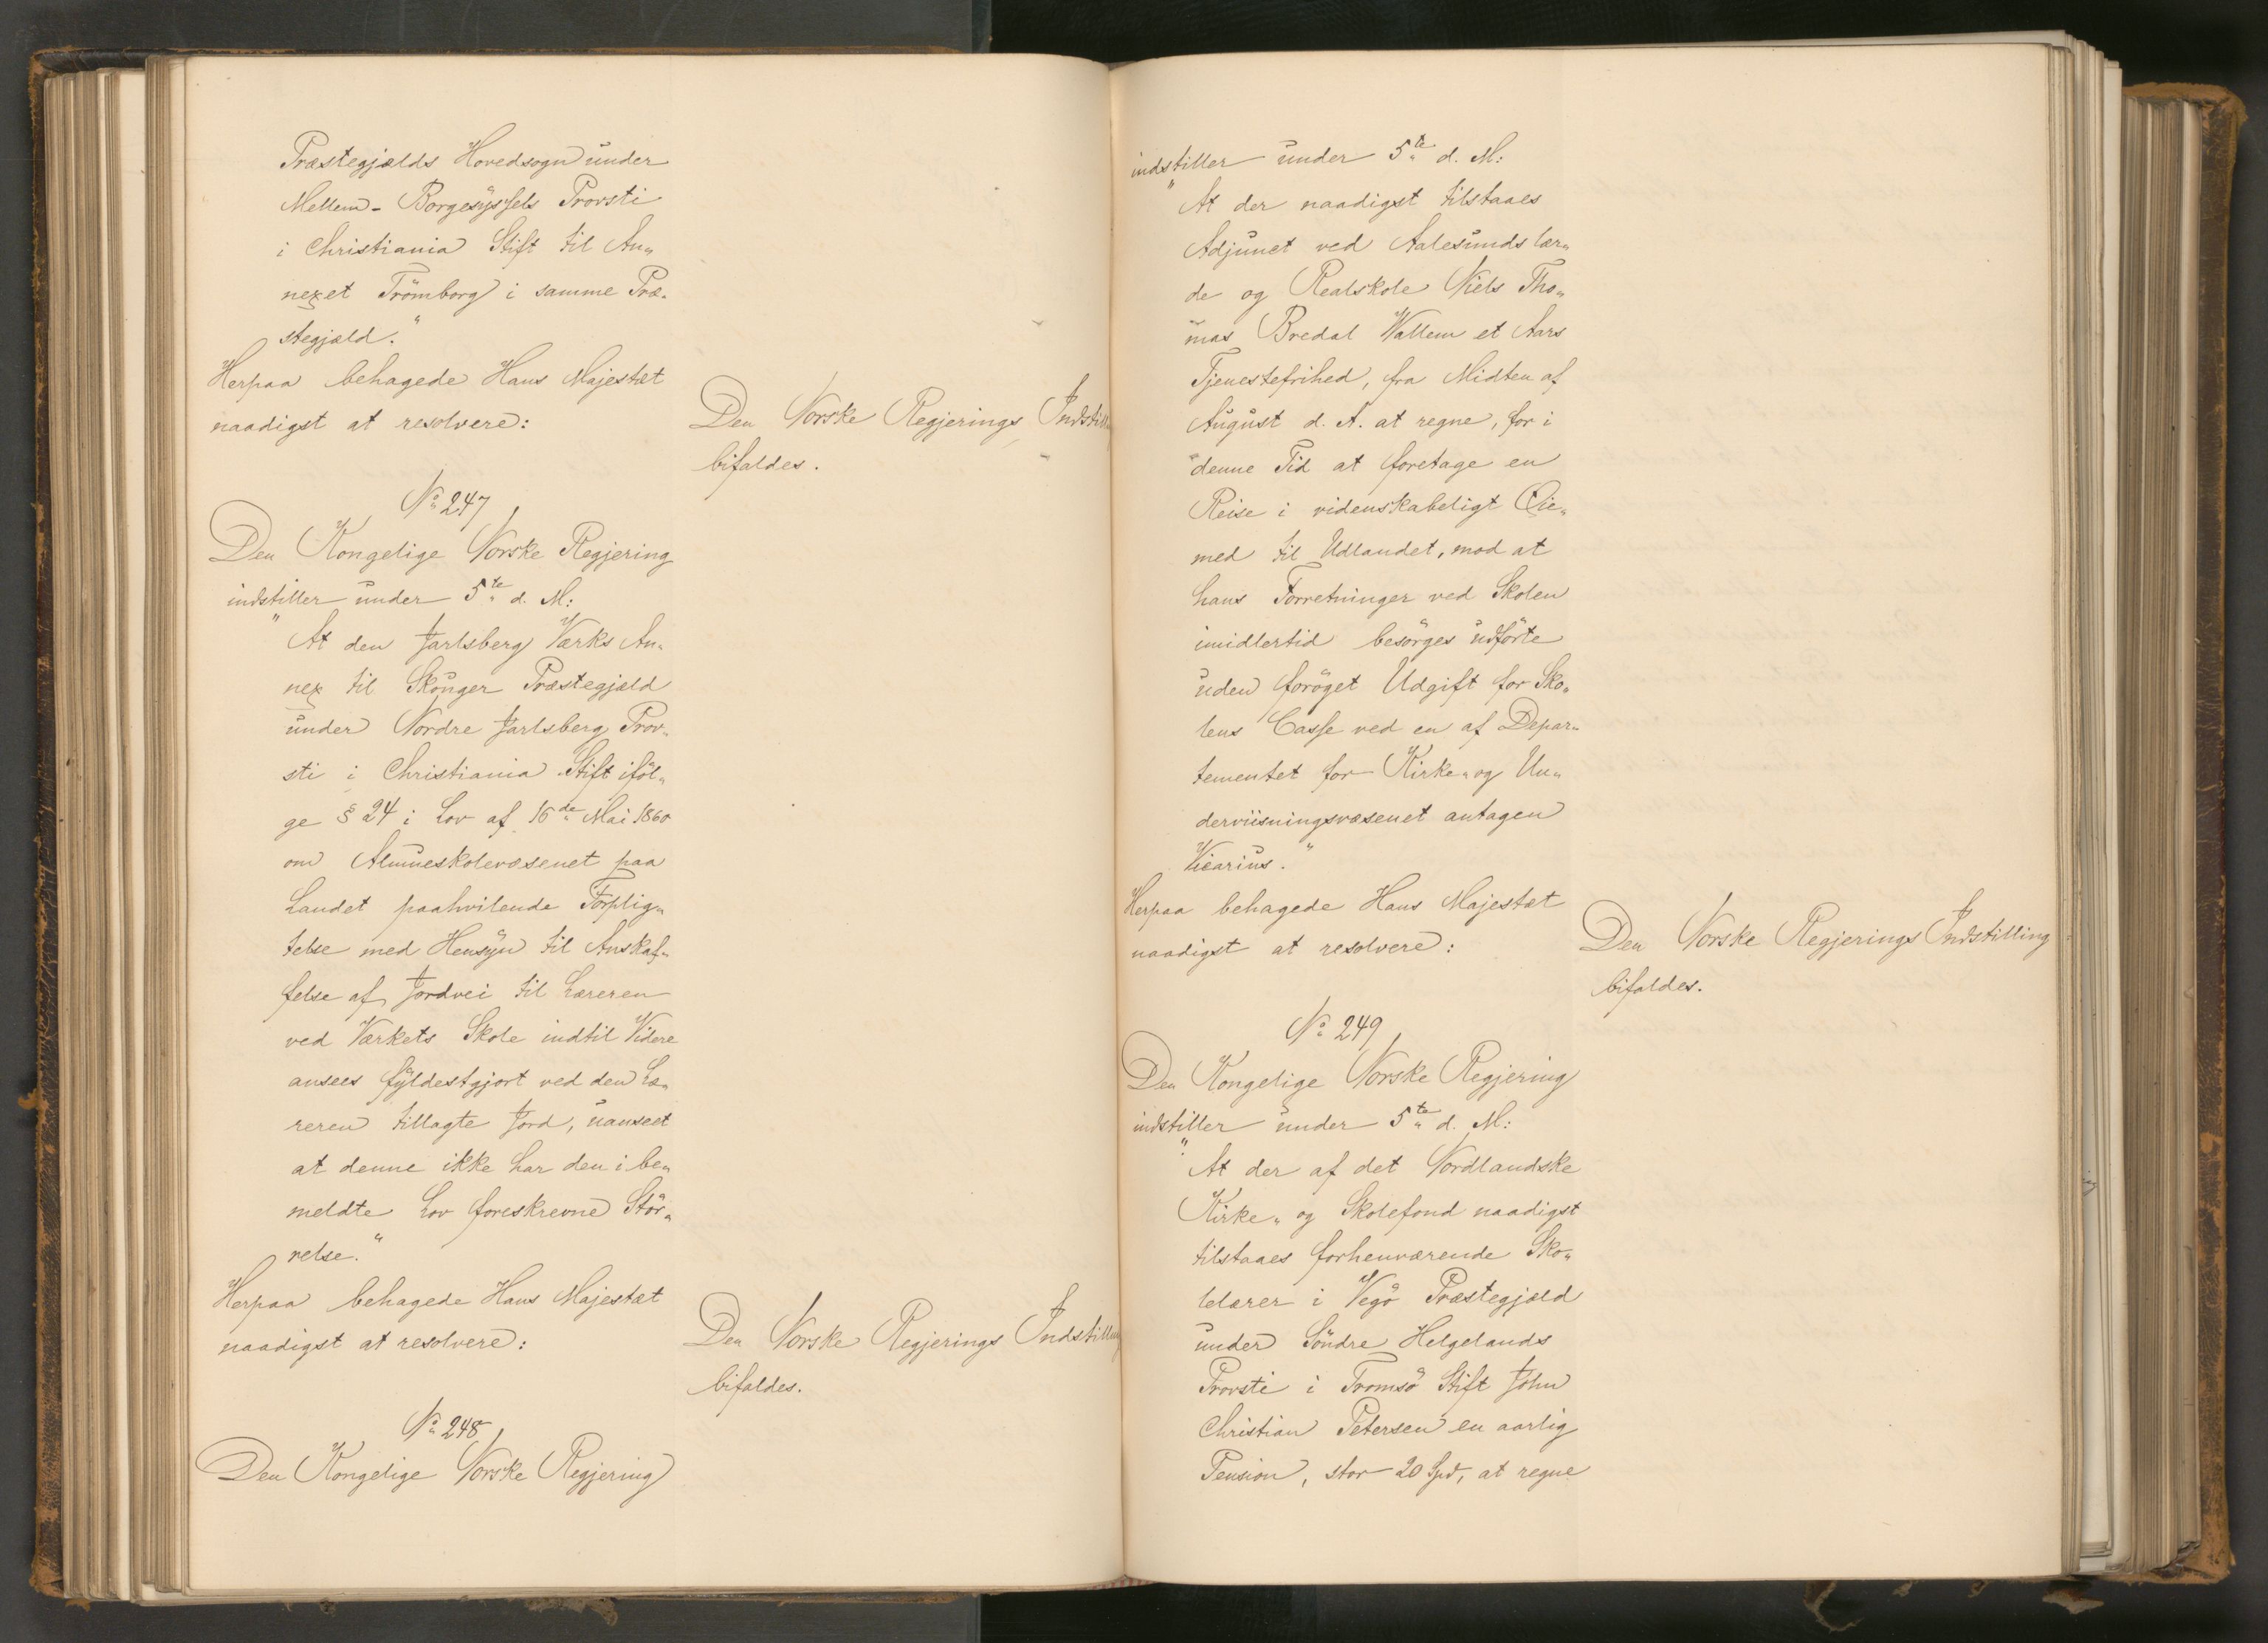 Præstegjælds Hovedsogn under
Mellem-Borgesyssels Provsti
i Christiania Stift til An„
nexet Trömborg i samme Præ„
stegjæld."
Herpaa behagede Hans Majestæt
naadigst at resolvere:
Den Norske Regjerings Indstill
bifaldes.
No 247
Den Kongelige Norske Regjering
indstiller under 5te d. M:
"At den Jarlsberg Værks An„
nex til Skouger Præstegjæld
under Nordre Jarlsberg Prov„
sti i Christiania Stift iföl„
ge § 24 i Lov af 16de Mai 1860
om Almueskolevæsenet paa
Landet paahvilende Forplig„
telse med Hensyn til Anskaf„
felse af Jordvei til Læreren
ved Værkets Skole indtil Videre
ansees fyldestgjort ved den Læ„
reren tillagte Jord, uanseet
at denne ikke har den i be„
meldte Lov foreskrevne Stör„
relse."
Herpaa behagede Hans Majestæt
naadigst at resolvere:
Den Norske Regjerings Indstilling
bifaldes.
No 248
Den Kongelige Norske Regjering
indstiller under 5te d. M:
"At der naadigst tilstaaes
Adjunct ved Aalesunds lær„
de og Realskole Niels Tho„
mas Bredal Wallem et Aars
Tjenestefrihed, fra Midten af
August d. A. at regne, for i
denne Tid at foretage en
Reise i videnskabeligt Öie„
med til Udlandet, mod at
hans Forretninger ved Skolen
imidlertid besörges udförte
uden foröget Udgift for Sko„
lens Casse ved en af Depar„
tementet for Kirke„ og Un„
derviisningsvæsenet antagen
Vicarius."
Herpaa behagede Hans Majestæt
naadigst at resolvere:
Den Norske Regjerings Indstilling
bifaldes.
No 249
Den Kongelige Norske Regjering
indstiller under 5te d. M:
"At der af det Nordlandske
Kirke„ og Skolefond naadigst
tilstaaes forhenværende Sko„
lelærer i Vegö Præstegjæld
under Söndre Helgelands
Provsti i Tromsö Stift John
Christian Petersen en aarlig
Pension, stor 20 Spd, at regne